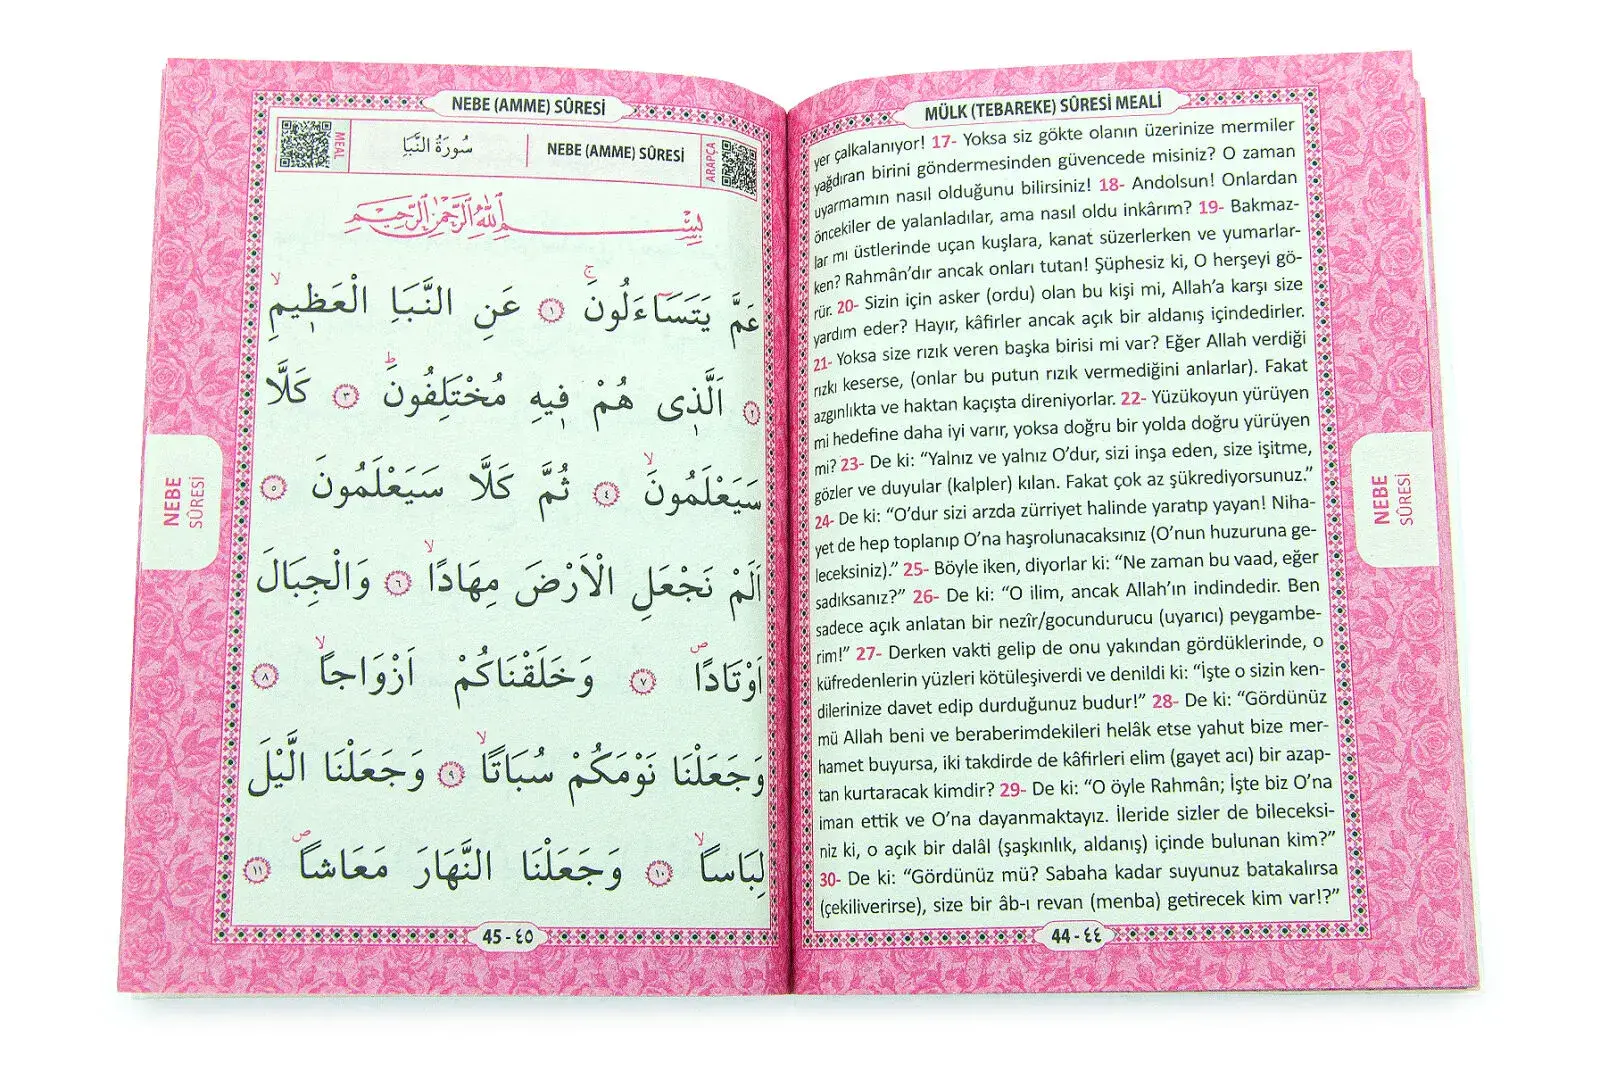 MÜLK (TEBAREKE) SÛRESİ MEALİ
yer çalkalanıyor! 17- Yoksa siz gökte olanın üzerinize mermiler
yağdıran birini göndermesinden güvencede misiniz? O zaman
uyarmamın nasıl olduğunu bilirsiniz! 18- Andolsun! Onlardan
öncekiler de yalanladılar, ama nasıl oldu inkârım? 19- Bakmaz-
lar mı üstlerinde uçan kuşlara, kanat süzerlerken ve yumarlar-
ken? Rahmân’dır ancak onları tutan! Şüphesiz ki, O herşeyi gö-
rür. 20- Sizin için asker (ordu) olan bu kişi mi, Allah’a karşı size
yardım eder? Hayır, kâfirler ancak açık bir aldanış içindedirler.
21- Yoksa size rızık veren başka birisi mi var? Eğer Allah verdiği
rızkı keserse, (onlar bu putun rızık vermediğini anlarlar). Fakat
azgınlıkta ve haktan kaçışta direniyorlar. 22- Yüzükoyun yürüyen
mi hedefine daha iyi varır, yoksa doğru bir yolda doğru yürüyen
mi? 23- De ki: “Yalnız ve yalnız O’dur, sizi inşa eden, size işitme,
gözler ve duyular (kalpler) kılan. Fakat çok az şükrediyorsunuz.”
24- De ki: “O’dur sizi arzda zürriyet halinde yaratıp yayan! Niha-
yet de hep toplanıp O’na haşrolunacaksınız (O’nun huzuruna ge-
leceksiniz).” 25- Böyle iken, diyorlar ki: “Ne zaman bu vaad, eğer
sadıksanız?” 26- De ki: “O ilim, ancak Allah’ın indindedir. Ben
sadece açık anlatan bir nezîr/gocundurucu (uyarıcı) peygambe-
rim!” 27- Derken vakti gelip de onu yakından gördüklerinde, o
küfredenlerin yüzleri kötüleşiverdi ve denildi ki: “İşte o sizin ken-
dilerinize davet edip durduğunuz budur!” 28- De ki: “Gördünüz
mü Allah beni ve beraberimdekileri helâk etse yahut bize mer-
hamet buyursa, iki takdirde de kâfirleri elim (gayet acı) bir azap-
tan kurtaracak kimdir? 29- De ki: “O öyle Rahmân; İşte biz O’na
iman ettik ve O’na dayanmaktayız. İleride sizler de bileceksi-
niz ki, o açık bir dalâl (şaşkınlık, aldanış) içinde bulunan kim?”
30- De ki: “Gördünüz mü? Sabaha kadar suyunuz batakalırsa
(çekiliverirse), size bir âb-ı revan (menba) getirecek kim var!?”
44 - ٤٤
NEBE
SÛRESİ
NEBE (AMME) SÛRESİ
ARAPÇA
NEBE (AMME) SÛRESİ
سُورَةُ النَّبَأِ
MEAL
بِسْمِ اللّٰهِ الرَّحْمٰنِ الرَّحِيمِ
عَمَّ يَتَسَٓاءَلُونَۚ ١ عَنِ النَّبَأِ الْعَظ۪يمِۙ
٢ اَلَّذ۪ي هُمْ ف۪يهِ مُخْتَلِفُونَۜ ٣ كَلَّا
سَيَعْلَمُونَۙ ٤ ثُمَّ كَلَّا سَيَعْلَمُونَ ٥
اَلَمْ نَجْعَلِ الْاَرْضَ مِهَادًاۙ ٦ وَالْجِبَالَ
اَوْتَادًاۖ ٧ وَخَلَقْنَاكُمْ اَزْوَاجًاۙ ٨
وَجَعَلْنَا نَوْمَكُمْ سُبَاتًاۙ ٩ وَجَعَلْنَا الَّيْلَ
لِبَاسًاۙ ١٠ وَجَعَلْنَا النَّهَارَ مَعَاشًاۖ ١١
45 - ٤٥
NEBE
SÛRESİ